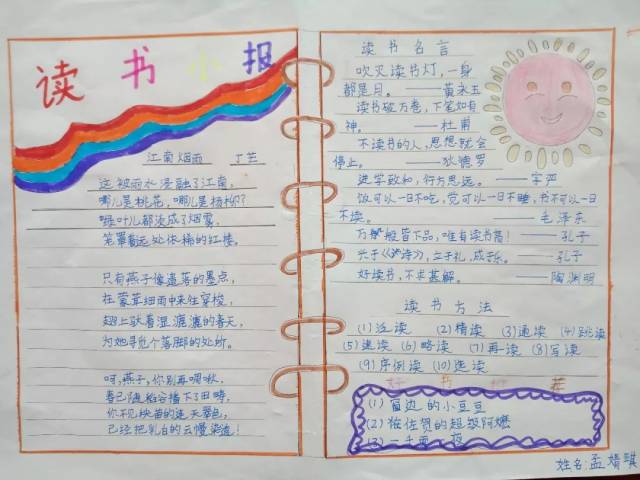 读书小报
江南烟雨 丁芒
这被雨水浸融了江南,
哪儿是桃花,哪儿是杨柳?
绿叶儿都淡成了烟雾,
笼罩着远处依稀的红楼。
只有燕子像遗落的墨点,
在蒙茸细雨中来住穿梭,
翅上驮着湿漉漉的春天,
为她寻觅个落脚的处所。
呵,燕子,你别再啁啾,
春已随稻谷播下了田畴,
你不见秧苗的连天翠色,
已经把乳白的云幔染透!
读书名言
吹灭读书灯,一身
都是月。——黄永玉
读书破万卷,下笔如有
神。——杜甫
不读书的人,思想就会
停止。——狄德罗
进学致和,行方思远。——字严
饭可以一日不吃,觉可以一日不睡,书不可以一日
不读。——毛泽东
万般皆下品,唯有读书高!——孔子
兴于《诗》,立于礼,成于乐。——孔子
好读书,不求甚解。——陶渊明
读书方法
(1)泛读 (2)精读 (3)通读 (4)跳读
(5)速读 (6)略读 (7)再读 (8)写读
(9)序例读 (10)选读
好书推荐
(1)窗边的小豆豆
(2)佐佐贺的超级阿嬷
(3)一千零一夜
姓名:孟婧琪